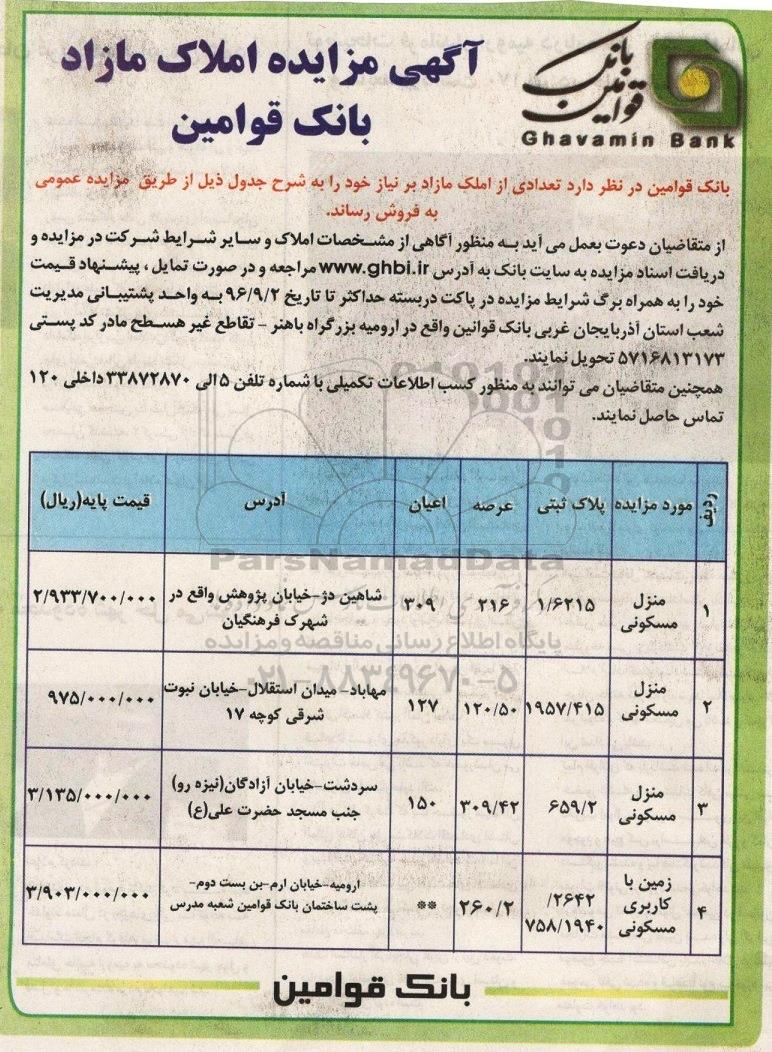 بانک قوامین
Ghavamin Bank
آگهی مزایده املاک مازاد
بانک قوامین
بانک قوامین در نظر دارد تعدادی از املک مازاد بر نیاز خود را به شرح جدول ذیل از طریق مزایده عمومی
به فروش رساند.
از متقاضیان دعوت بعمل می آید به منظور آگاهی از مشخصات املاک و سایر شرایط شرکت در مزایده و
دریافت اسناد مزایده به سایت بانک به آدرس www.ghbi.ir مراجعه و در صورت تمایل ، پیشنهاد قیمت
خود را به همراه برگ شرایط مزایده در پاکت دربسته حداکثر تا تاریخ ۹۶/۹/۲ به واحد پشتیبانی مدیریت
شعب استان آذربایجان غربی بانک قوانین واقع در ارومیه بزرگراه باهنر - تقاطع غیر هسطح مادر کد پستی
۵۷۱۶۸۱۳۱۷۳ تحویل نمایند.
همچنین متقاضیان می توانند به منظور کسب اطلاعات تکمیلی با شماره تلفن ۵ الی ۳۳۸۷۲۸۷۰ داخلی ۱۲۰
تماس حاصل نمایند.
ردیف مورد مزایده پلاک ثبتی عرصه اعیان آدرس قیمت پایه(ریال)
۱ منزل مسکونی ۱/۶۲۱۵ ۲۱۶ ۳۰۹ شاهین دژ-خیابان پژوهش واقع در ۲/۹۳۳/۷۰۰/۰۰۰
شهرک فرهنگیان
۲ منزل مسکونی ۱۹۵۷/۴۱۵ ۱۲۰/۵۰ ۱۲۷ مهاباد- میدان استقلال-خیابان نبوت ۹۷۵/۰۰۰/۰۰۰
شرقی کوچه ۱۷
۳ منزل مسکونی ۶۵۹/۲ ۳۰۹/۴۲ ۱۵۰ سردشت-خیابان آزادگان(نیزه رو) ۳/۱۳۵/۰۰۰/۰۰۰
جنب مسجد حضرت علی(ع)
۴ زمین با کاربری مسکونی ۲۶۴۲/ ۷۵۸/۱۹۴۰ ۲۶۰/۲ ** ارومیه-خیابان ارم-بن بست دوم- ۳/۹۰۳/۰۰۰/۰۰۰
پشت ساختمان بانک قوامین شعبه مدرس
ParsNamadData
پایگاه اطلاع رسانی مناقصه و مزایده
۰۲۱-۸۸۳۴۹۶۷۰-۵
بانک قوامین